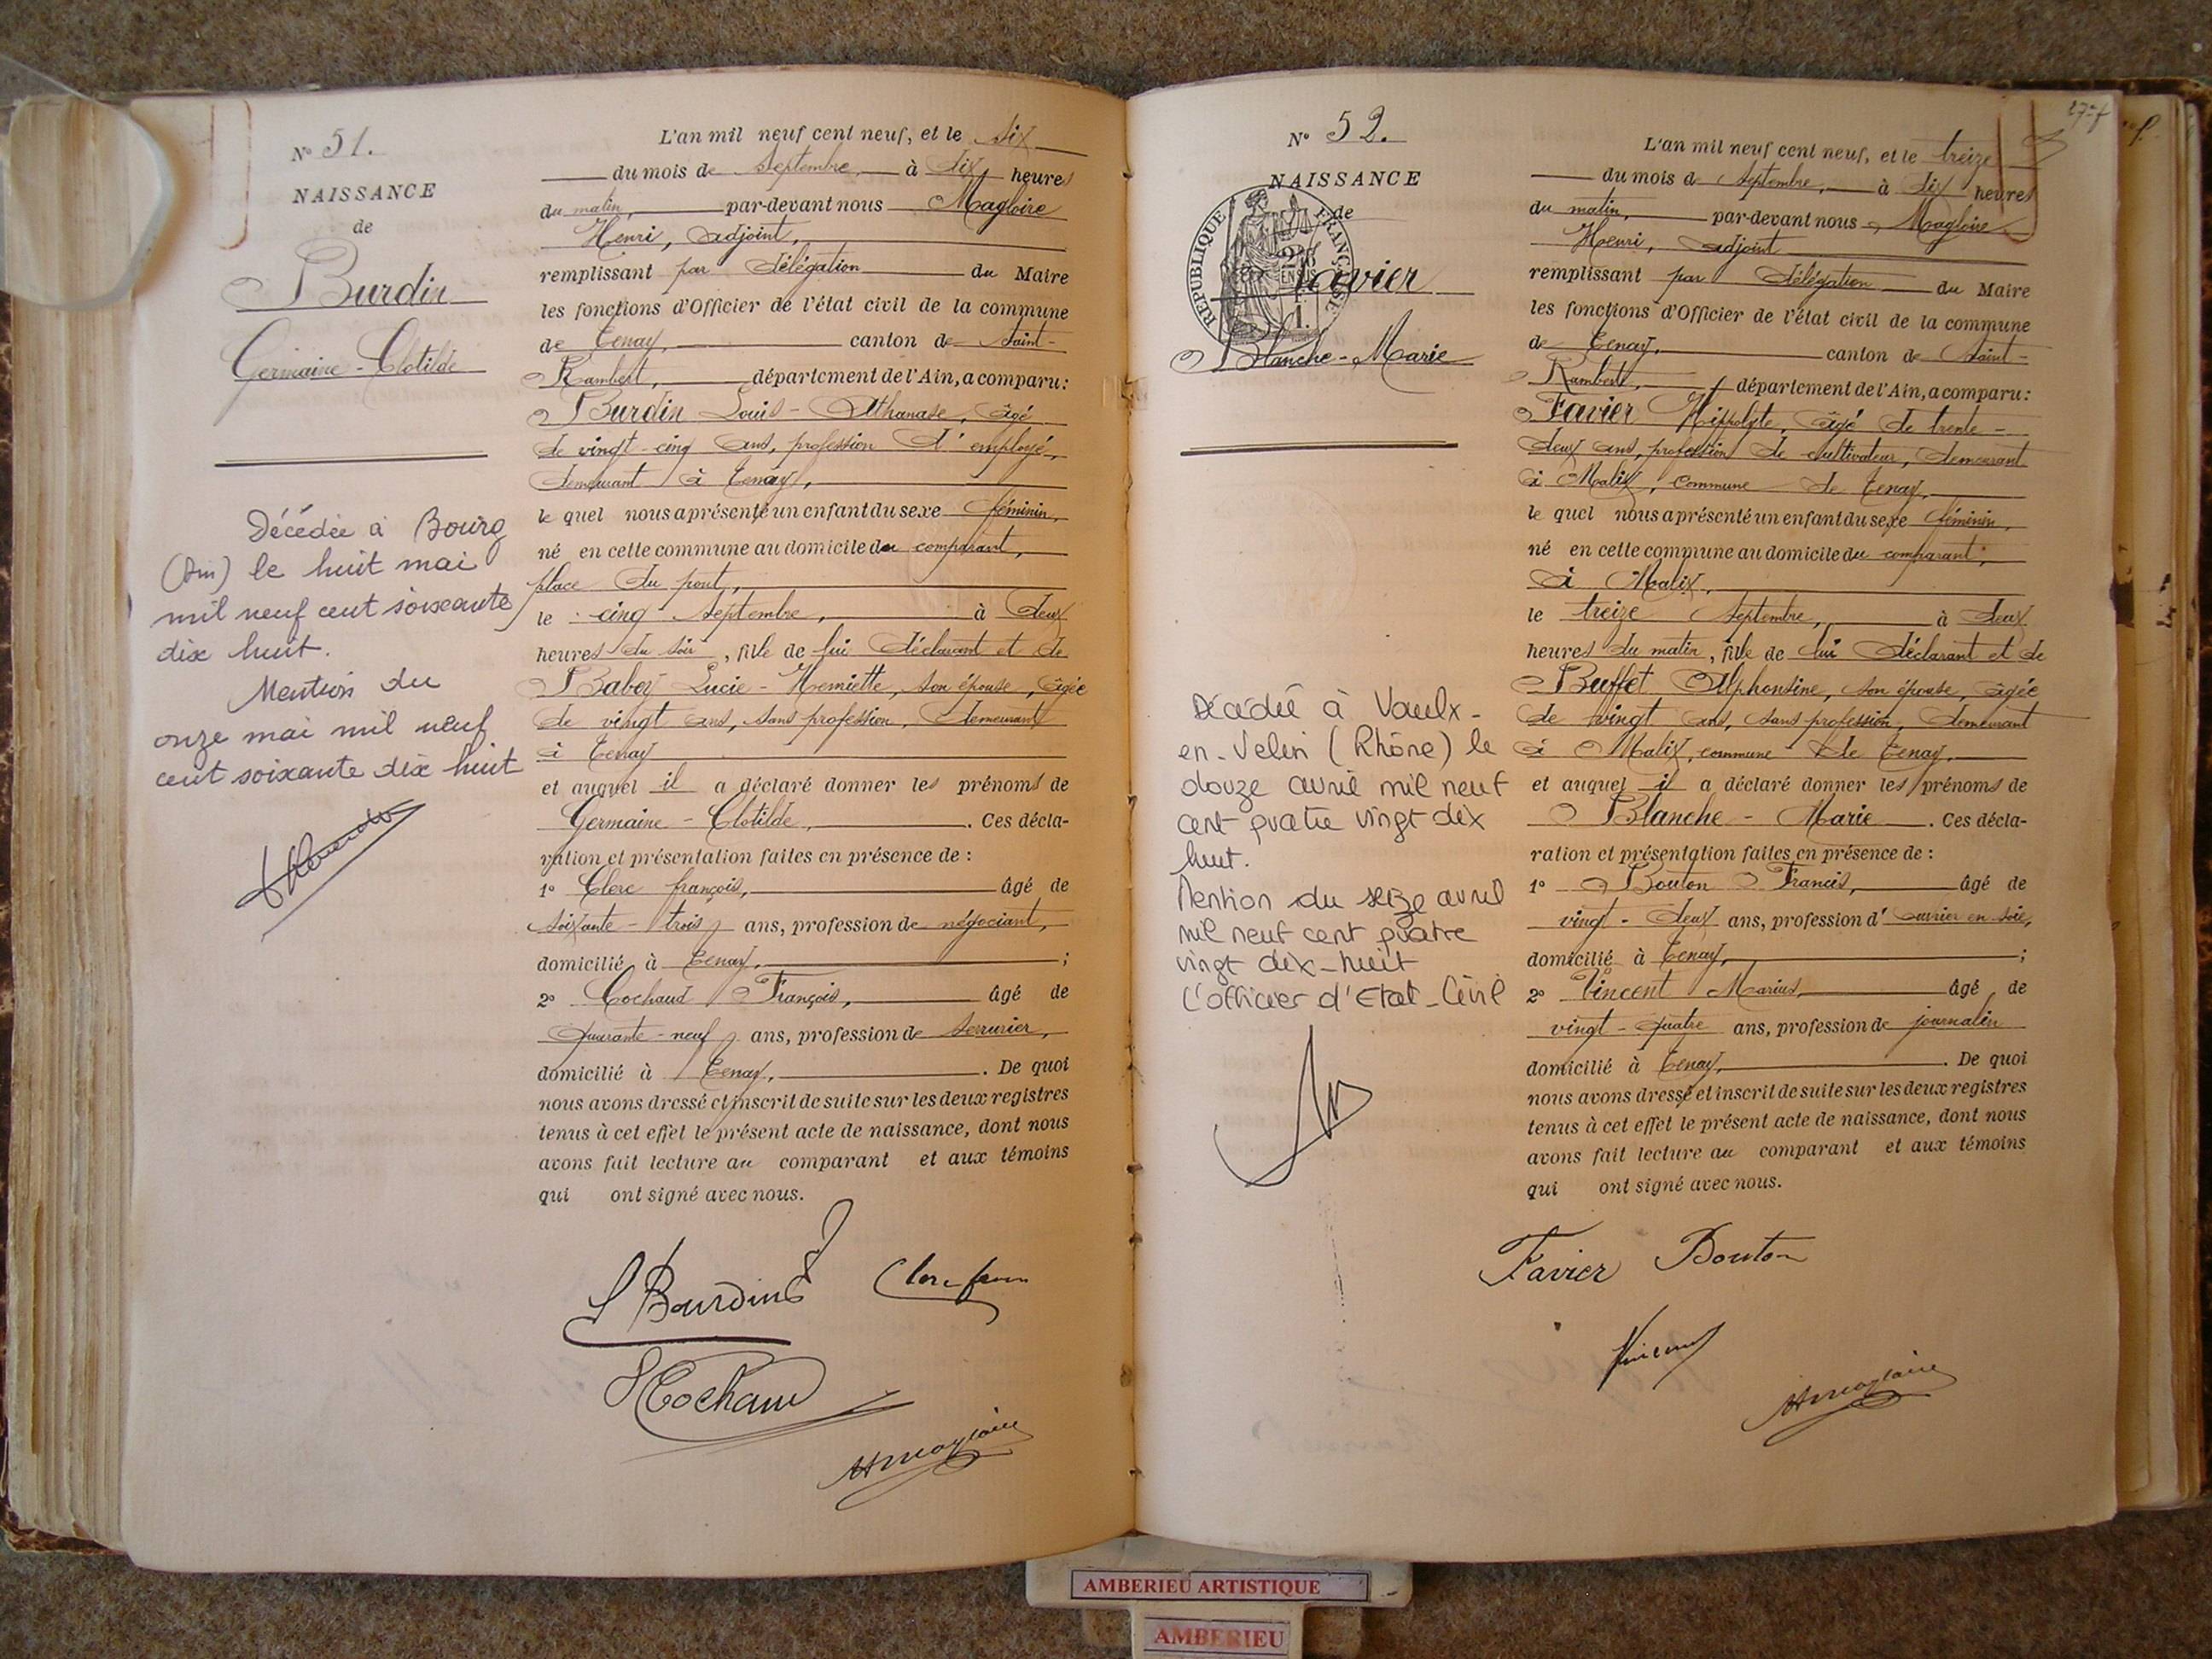 N° 51.
NAISSANCE
de
Burdin
Germaine - Clotilde
Décédée à Bourg
(Ain) le huit mai
mil neuf cent soixante
dix huit.
Mention du
onze mai mil neuf
cent soixante dix huit
L'an mil neuf cent neuf, et le six
du mois de septembre, à dix heures
du matin, par-devant nous Magloire
Henri, adjoint,
remplissant par délégation du Maire
les fonctions d'Officier de l'état civil de la commune
de Tenay, canton de Saint-
Rambert, département de l'Ain, a comparu:
Burdin Louis - Athanase, âgé
de vingt-cinq ans, profession d'employé,
demeurant à Tenay,
le quel nous a présenté un enfant du sexe féminin,
né en cette commune au domicile du comparant,
place du pont,
le cinq septembre, à deux
heures du soir, fille de lui déclarant et de
Babey Lucie - Henriette, son épouse, âgée
de vingt ans, sans profession, demeurant
à Tenay
et auquel il a déclaré donner les prénoms de
Germaine - Clotilde, . Ces décla-
ration et présentation faites en présence de :
1° Clerc françois, âgé de
soixante - trois ans, profession de négociant,
domicilié à Tenay, ;
2° Cochaud François, âgé de
quarante-neuf ans, profession de serrurier,
domicilié à Tenay, . De quoi
nous avons dressé et inscrit de suite sur les deux registres
tenus à cet effet le présent acte de naissance, dont nous
avons fait lecture au comparant et aux témoins
qui ont signé avec nous.
L Burdin Clerc
Cochaud
H Magloire
N° 52.
NAISSANCE
de
RÉPUBLIQUE FRANÇAISE
Favier
Blanche - Marie
Décédée à Vaulx-
en-Velin (Rhône) le
douze avril mil neuf
cent quatre vingt dix
huit.
Mention du seize avril
mil neuf cent quatre
vingt dix-huit
L'officier d'Etat-Civil
27-f
L'an mil neuf cent neuf, et le treize
du mois de septembre, à dix heures
du matin, par-devant nous Magloire
Henri, adjoint
remplissant par délégation du Maire
les fonctions d'Officier de l'état civil de la commune
de Tenay, canton de Saint-
Rambert, département de l'Ain, a comparu:
Favier Hippolyte, âgé de trente-
deux ans, profession de cultivateur, demeurant
à Malix, commune de Tenay,
le quel nous a présenté un enfant du sexe féminin,
né en cette commune au domicile du comparant,
à Malix,
le treize septembre, à deux
heures du matin, fille de lui déclarant et de
Buffet Alphonsine, son épouse, âgée
de vingt ans, sans profession, demeurant
à Malix, commune de Tenay,
et auquel il a déclaré donner les prénoms de
Blanche - Marie . Ces décla-
ration et présentation faites en présence de :
1° Bouton Francis, âgé de
vingt - deux ans, profession d'ouvrier en soie,
domicilié à Tenay, ;
2° Vincent Marius, âgé de
vingt - quatre ans, profession de journalin
domicilié à Tenay, . De quoi
nous avons dressé et inscrit de suite sur les deux registres
tenus à cet effet le présent acte de naissance, dont nous
avons fait lecture au comparant et aux témoins
qui ont signé avec nous.
Favier Bouton
Vincent
H Magloire
AMBERIEU ARTISTIQUE
AMBERIEU